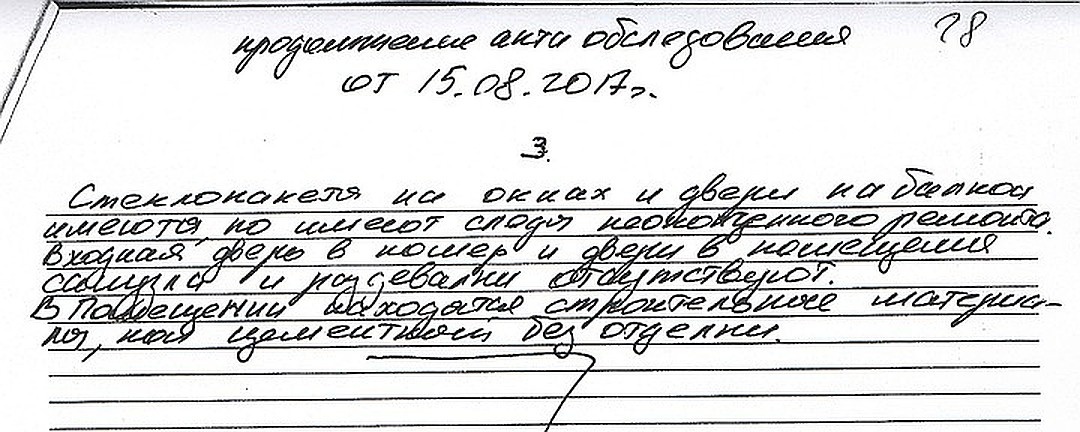 продолжение акта обследования 28
от 15.08.2017г.
3.
Стеклопакеты на окнах и двери на балкон
имеются, но имеют следы неоконченного ремонта.
Входная дверь в номер и двери в помещения
санузла и раздевалки отсутствуют.
В помещении находятся строительные материа-
лы, пол цементный без отделки.